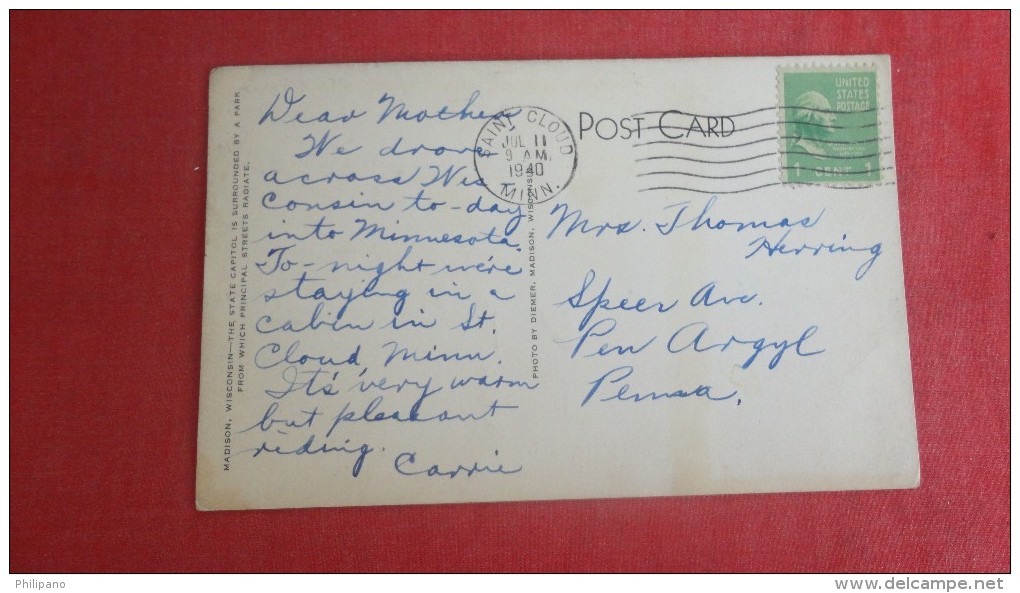 MADISON, WISCONSIN—THE STATE CAPITOL IS SURROUNDED BY A PARK
FROM WHICH PRINCIPAL STREETS RADIATE.
Dear Mother
We drove
across Wis
consin to-day
into Minnesota.
To-night we're
staying in a
cabin in St.
Cloud Minn.
It's very warm
but pleasant
riding.
Carrie
PHOTO BY DIEMER, MADISON, WISCONSIN
SAINT CLOUD
JUL 11
9 AM
1940
MINN.
POST CARD
UNITED
STATES
POSTAGE
1 CENT 1
Mrs. Thomas
Herring
Speer Ave.
Pen Argyl
Penna.
Philipano
www.delcampe.net